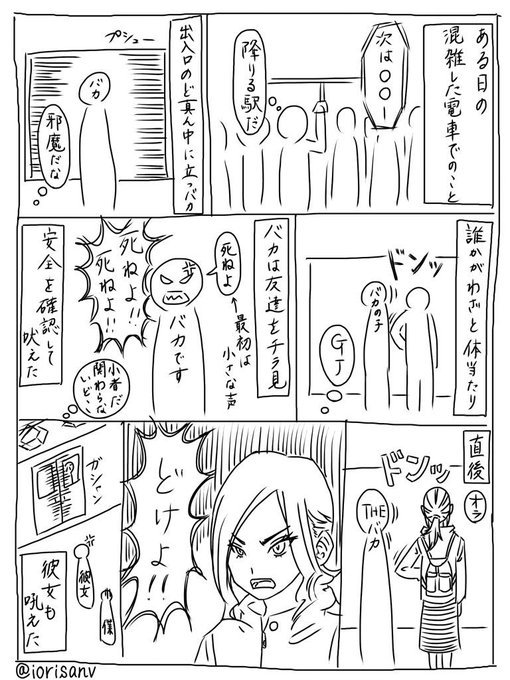 ある日の
混雑した電車でのこと
次は〇〇ー
降りる駅だ
プシュー
出入口のど真ん中に立つバカ
バカ
邪魔だな
誰かがわざと体当たり
ドンッ
バカの子
GJ
バカは友達をチラ見
死ねよ
←最初は
小さな声
バカです
死ねよ!!
死ねよ!!
安全を確認して
吠えた
小者だ
関わらな
いどこ
直後
オラ
ドンッ
THE
バカ
どけよ!!
ガシャン
彼女
僕
彼女も
吼えた
@iorisanv